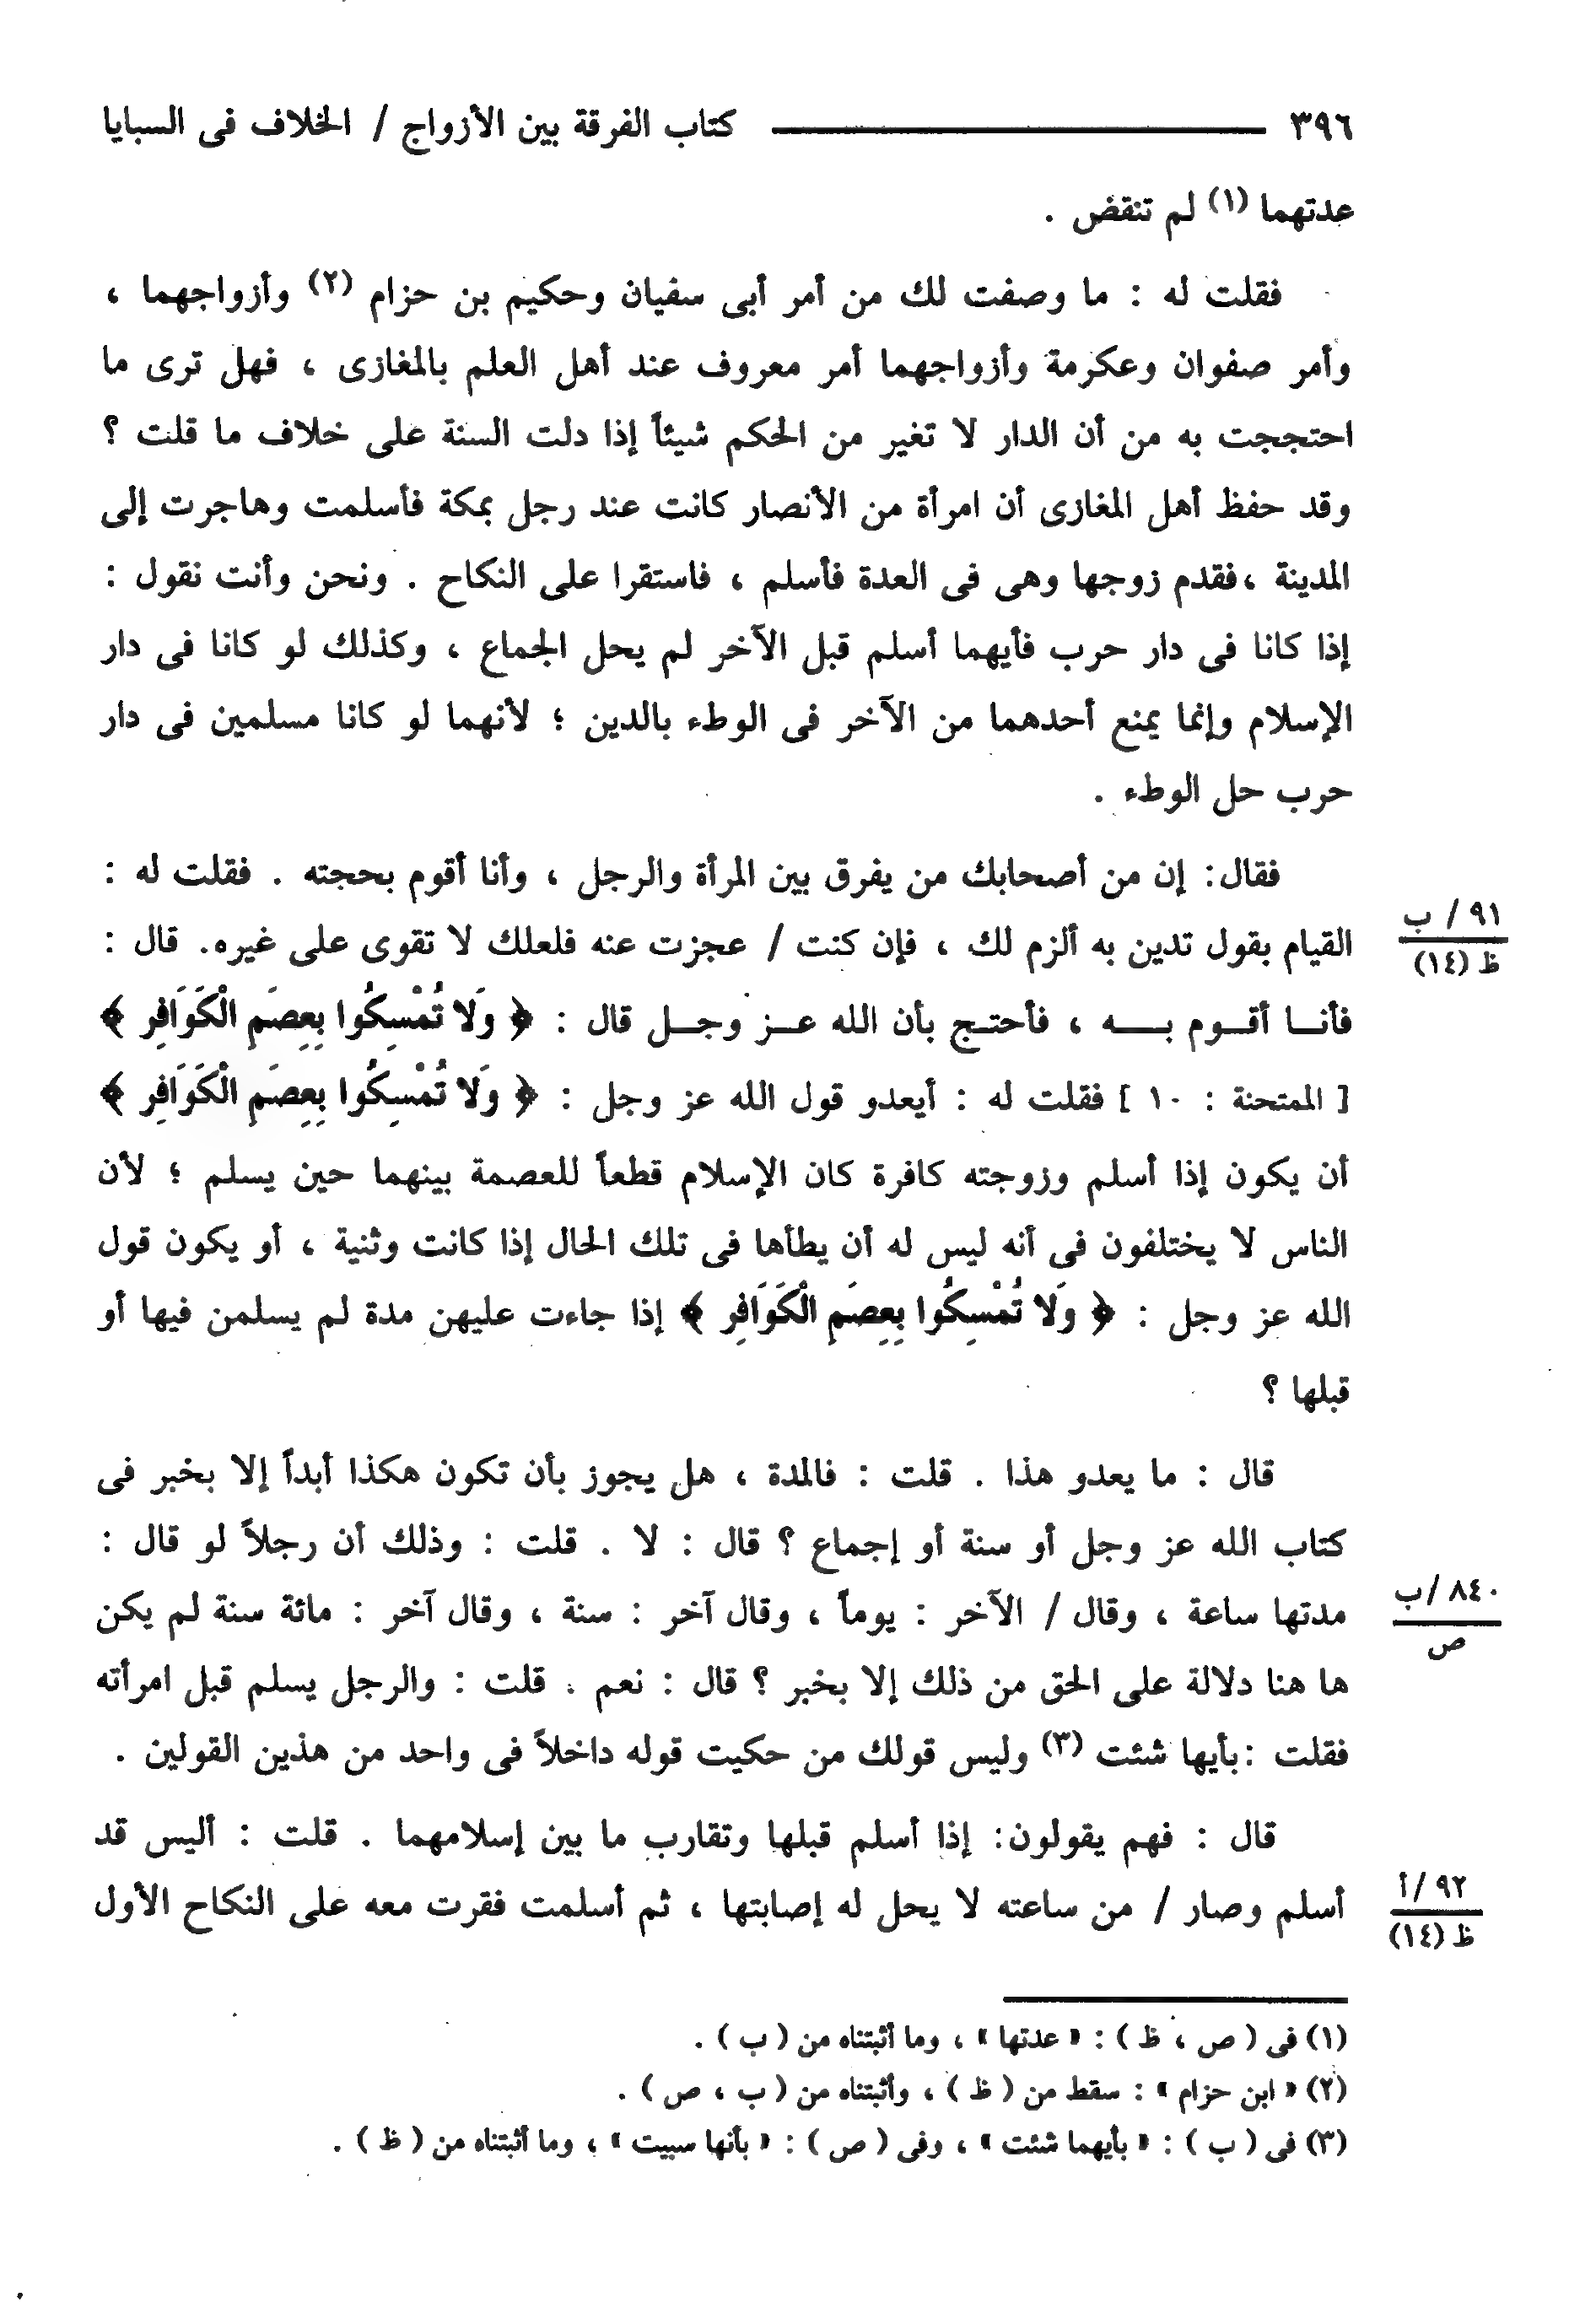 ٣٩٦ كتاب الفرقة بين الأزواج / الخلاف فى السبايا
عدتهما (١) لم تنقض .
فقلت له : ما وصفت لك من أمر أبى سفيان وحكيم بن حزام (٢) وأزواجهما ،
وأمر صفوان وعكرمة وأزواجهما أمر معروف عند أهل العلم بالمغازى ، فهل ترى ما
احتججت به من أن الدار لا تغير من الحكم شيئاً إذا دلت السنة على خلاف ما قلت ؟
وقد حفظ أهل المغازى أن امرأة من الأنصار كانت عند رجل بمكة فأسلمت وهاجرت إلى
المدينة ،فقدم زوجها وهى فى العدة فأسلم ، فاستقرا على النكاح . ونحن وأنت نقول :
إذا كانا فى دار حرب فأيهما أسلم قبل الآخر لم يحل الجماع ، وكذلك لو كانا فى دار
الإسلام وإنما يمنع أحدهما من الآخر فى الوطء بالدين ؛ لأنهما لو كانا مسلمين فى دار
حرب حل الوطء .
فقال: إن من أصحابك من يفرق بين المرأة والرجل ، وأنا أقوم بحجته . فقلت له :
٩١ / ب
ظ (١٤)
القيام بقول تدين به ألزم لك ، فإن كنت / عجزت عنه فلعلك لا تقوى على غيره. قال :
فأنــا أقــوم بــــه ، فأحتـج بأن الله عــز وجــل قال : ﴿ وَلا تُمْسِكُوا بِعِصَمِ الْكَوَافِرِ ﴾
[ الممتحنة : ١٠ ] فقلت له : أيعدو قول الله عز وجل : ﴿ وَلا تُمْسِكُوا بِعِصَمِ الْكَوَافِرِ ﴾
أن يكون إذا أسلم وزوجته كافرة كان الإسلام قطعاً للعصمة بينهما حين يسلم ؛ لأن
الناس لا يختلفون فى أنه ليس له أن يطأها فى تلك الحال إذا كانت وثنية ، أو يكون قول
الله عز وجل : ﴿ وَلا تُمْسِكُوا بِعِصَمِ الْكَوَافِرِ ﴾ إذا جاءت عليهن مدة لم يسلمن فيها أو
قبلها ؟
قال : ما يعدو هذا . قلت : فالمدة ، هل يجوز بأن تكون هكذا أبداً إلا بخبر فى
كتاب الله عز وجل أو سنة أو إجماع ؟ قال : لا . قلت : وذلك أن رجلاً لو قال :
٨٤٠ /ب
ص
مدتها ساعة ، وقال / الآخر : يوماً ، وقال آخر : سنة ، وقال آخر : مائة سنة لم يكن
ها هنا دلالة على الحق من ذلك إلا بخبر ؟ قال : نعم . قلت : والرجل يسلم قبل امرأته
فقلت :بأيها شئت (٣) وليس قولك من حكيت قوله داخلاً فى واحد من هذين القولين .
قال : فهم يقولون: إذا أسلم قبلها وتقارب ما بين إسلامهما . قلت : أليس قد
٩٢ /أ
ظ (١٤)
أسلم وصار / من ساعته لا يحل له إصابتها ، ثم أسلمت فقرت معه على النكاح الأول
(١) فى ( ص ، ظ ) : « عدتها » ، وما أثبتناه من ( ب ) .
(٢) « ابن حزام » : سقط من ( ظ ) ، وأثبتناه من ( ب ، ص ) .
(٣) فى ( ب ) : « بأيهما شئت » ، وفى ( ص ) : « بأنها سبيت » ، وما أثبتناه من ( ظ ) .